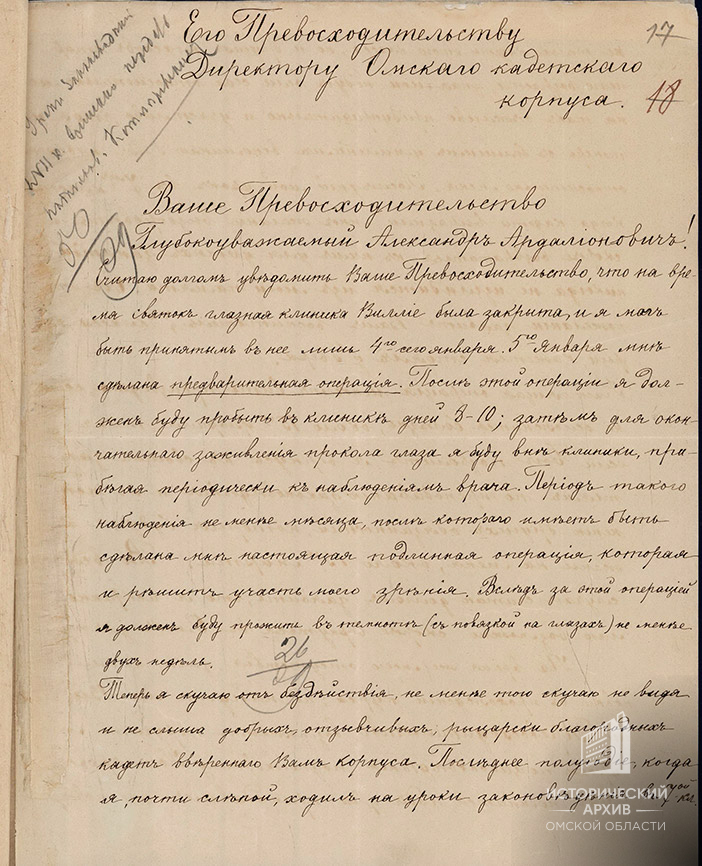 Его Превосходительству
Директору Омскаго кадетскаго
корпуса.
17
18
Ваше Превосходительство
Глубокоуважаемый Александръ Ардаліоновичъ!
Считаю долгомъ увѣдомить Ваше Превосходительство, что на вре-
мя святокъ глазная клиника Вилліе была закрыта, и я могъ
быть принятымъ въ нее лишь 4го сего января. 5го Января мнѣ
сдѣлана предварительная операція. Послѣ этой операціи я дол-
женъ буду пробыть въ клиникѣ дней 8-10; затѣмъ для окон-
чательнаго заживленія прокола глаза я буду внѣ клиники, при-
бѣгая періодически къ наблюденіямъ врача. Періодъ такого
наблюденія не менѣе мѣсяца, послѣ котораго имѣетъ быть
сдѣлана мнѣ настоящая подлинная операція, которая
и рѣшитъ участь моего зрѣнія. Вслѣдъ за этой операціей
я долженъ буду прожить въ темнотѣ (съ повязкой на глазахъ) не менѣе
двухъ недѣль.
26
Теперь я скучаю отъ бездѣйствія, не менѣе того скучаю не видя
и не слыша добрыхъ, отзывчивыхъ, рыцарски благородныхъ
кадетъ ввѣреннаго Вамъ корпуса. Послѣднее полугодіе, когда
я, почти слѣпой, ходилъ на уроки законовѣдѣнія въ
ИСТОРИЧЕСКИЙ
АРХИВ
ОМСКОЙ ОБЛАСТИ